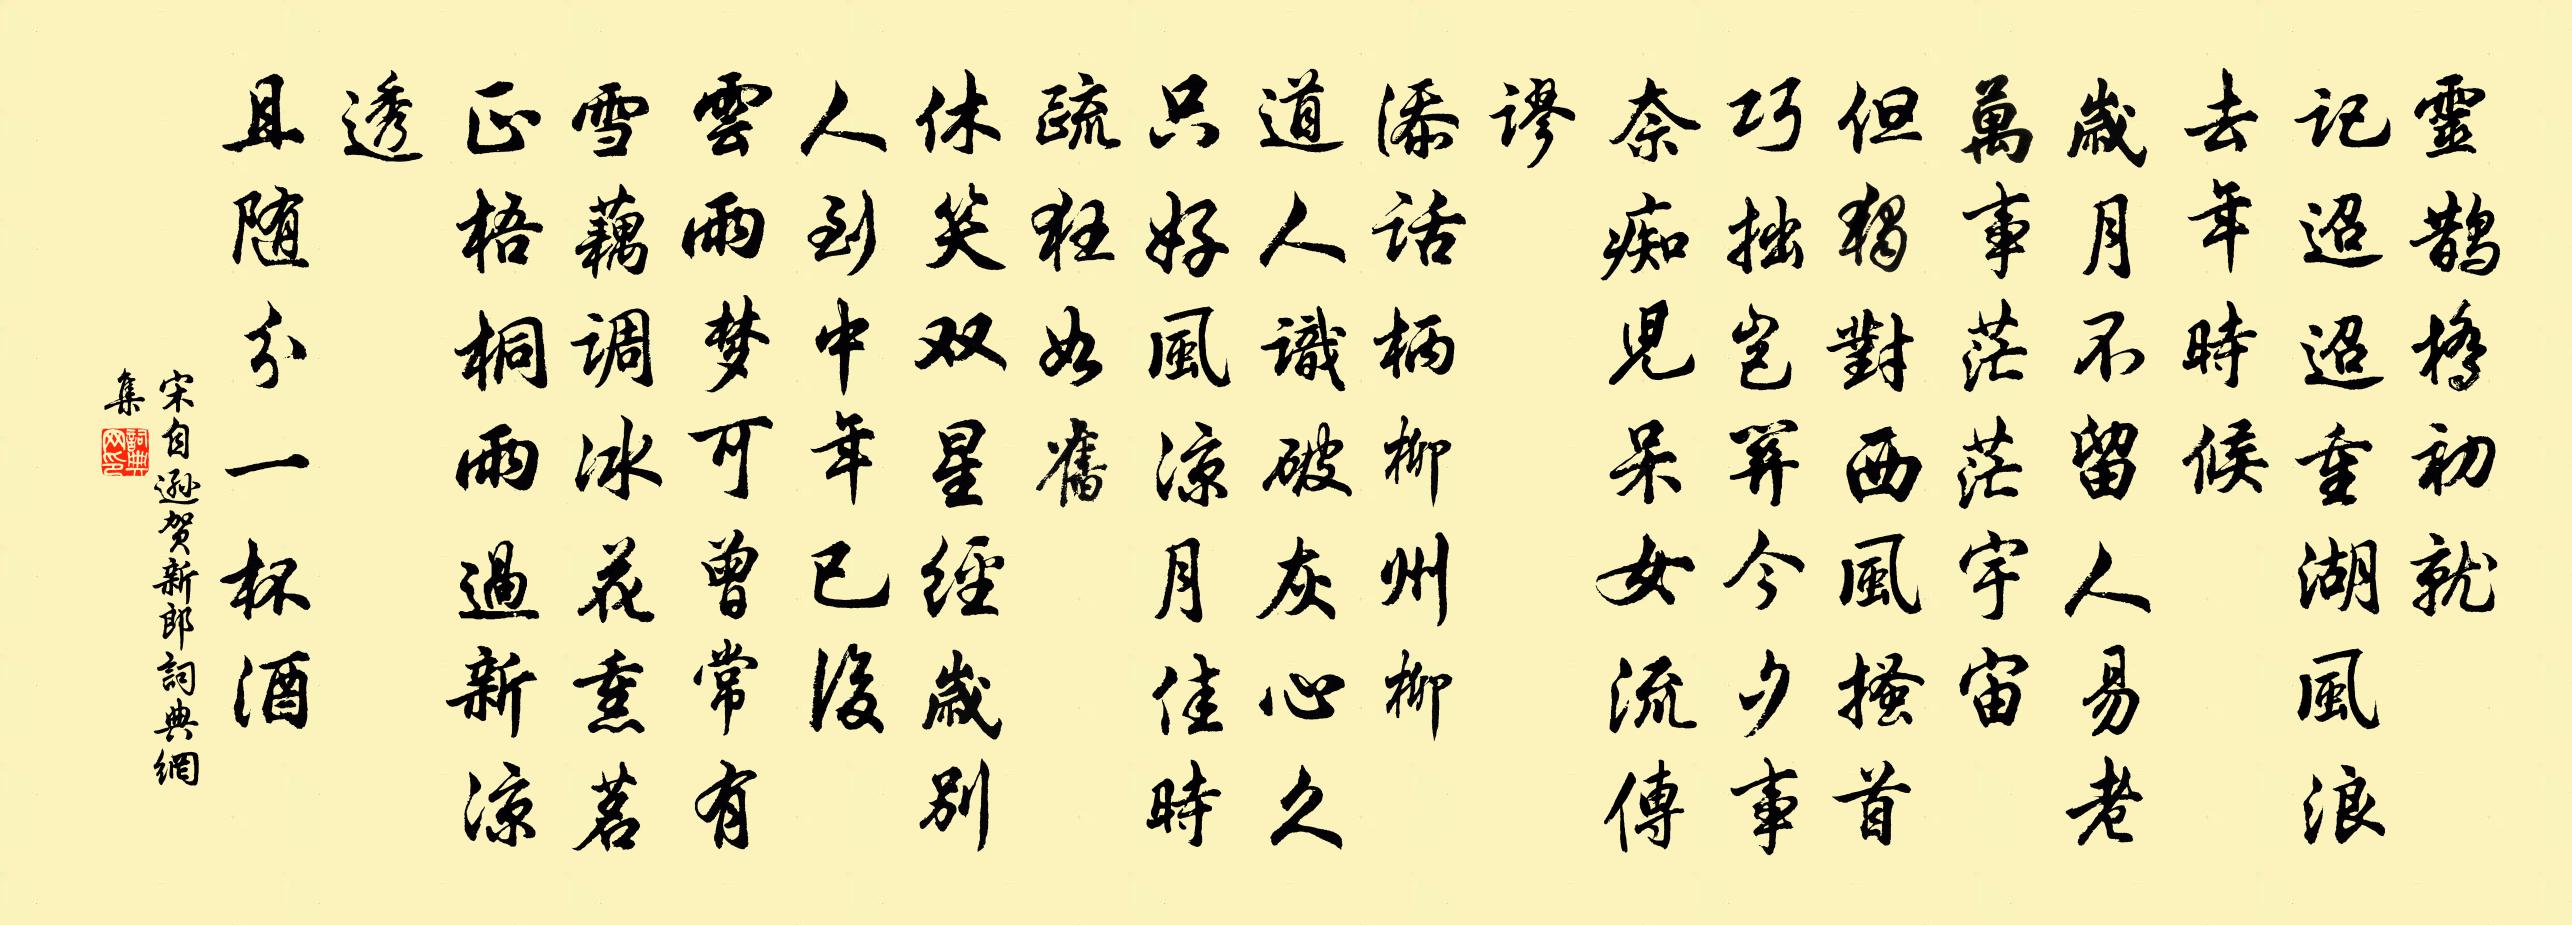 靈鹊橋初就
記迢迢重湖風浪
去年時候
歲月不留人易老
萬事茫茫宇宙
但獨對西風搔首
巧拙豈關今夕事
奈痴児呆女流傳
謬
添話柄柳州柳
道人識破灰心久
只好風凉月佳時
疏狂如舊
休笑双星經歲別
人到中年已後
雲雨梦可曾常有
雪藕调冰花熏茗
正梧桐雨過新凉
透
且随分一杯酒
宋自遜贺新郎詞典網
集
詞典网印